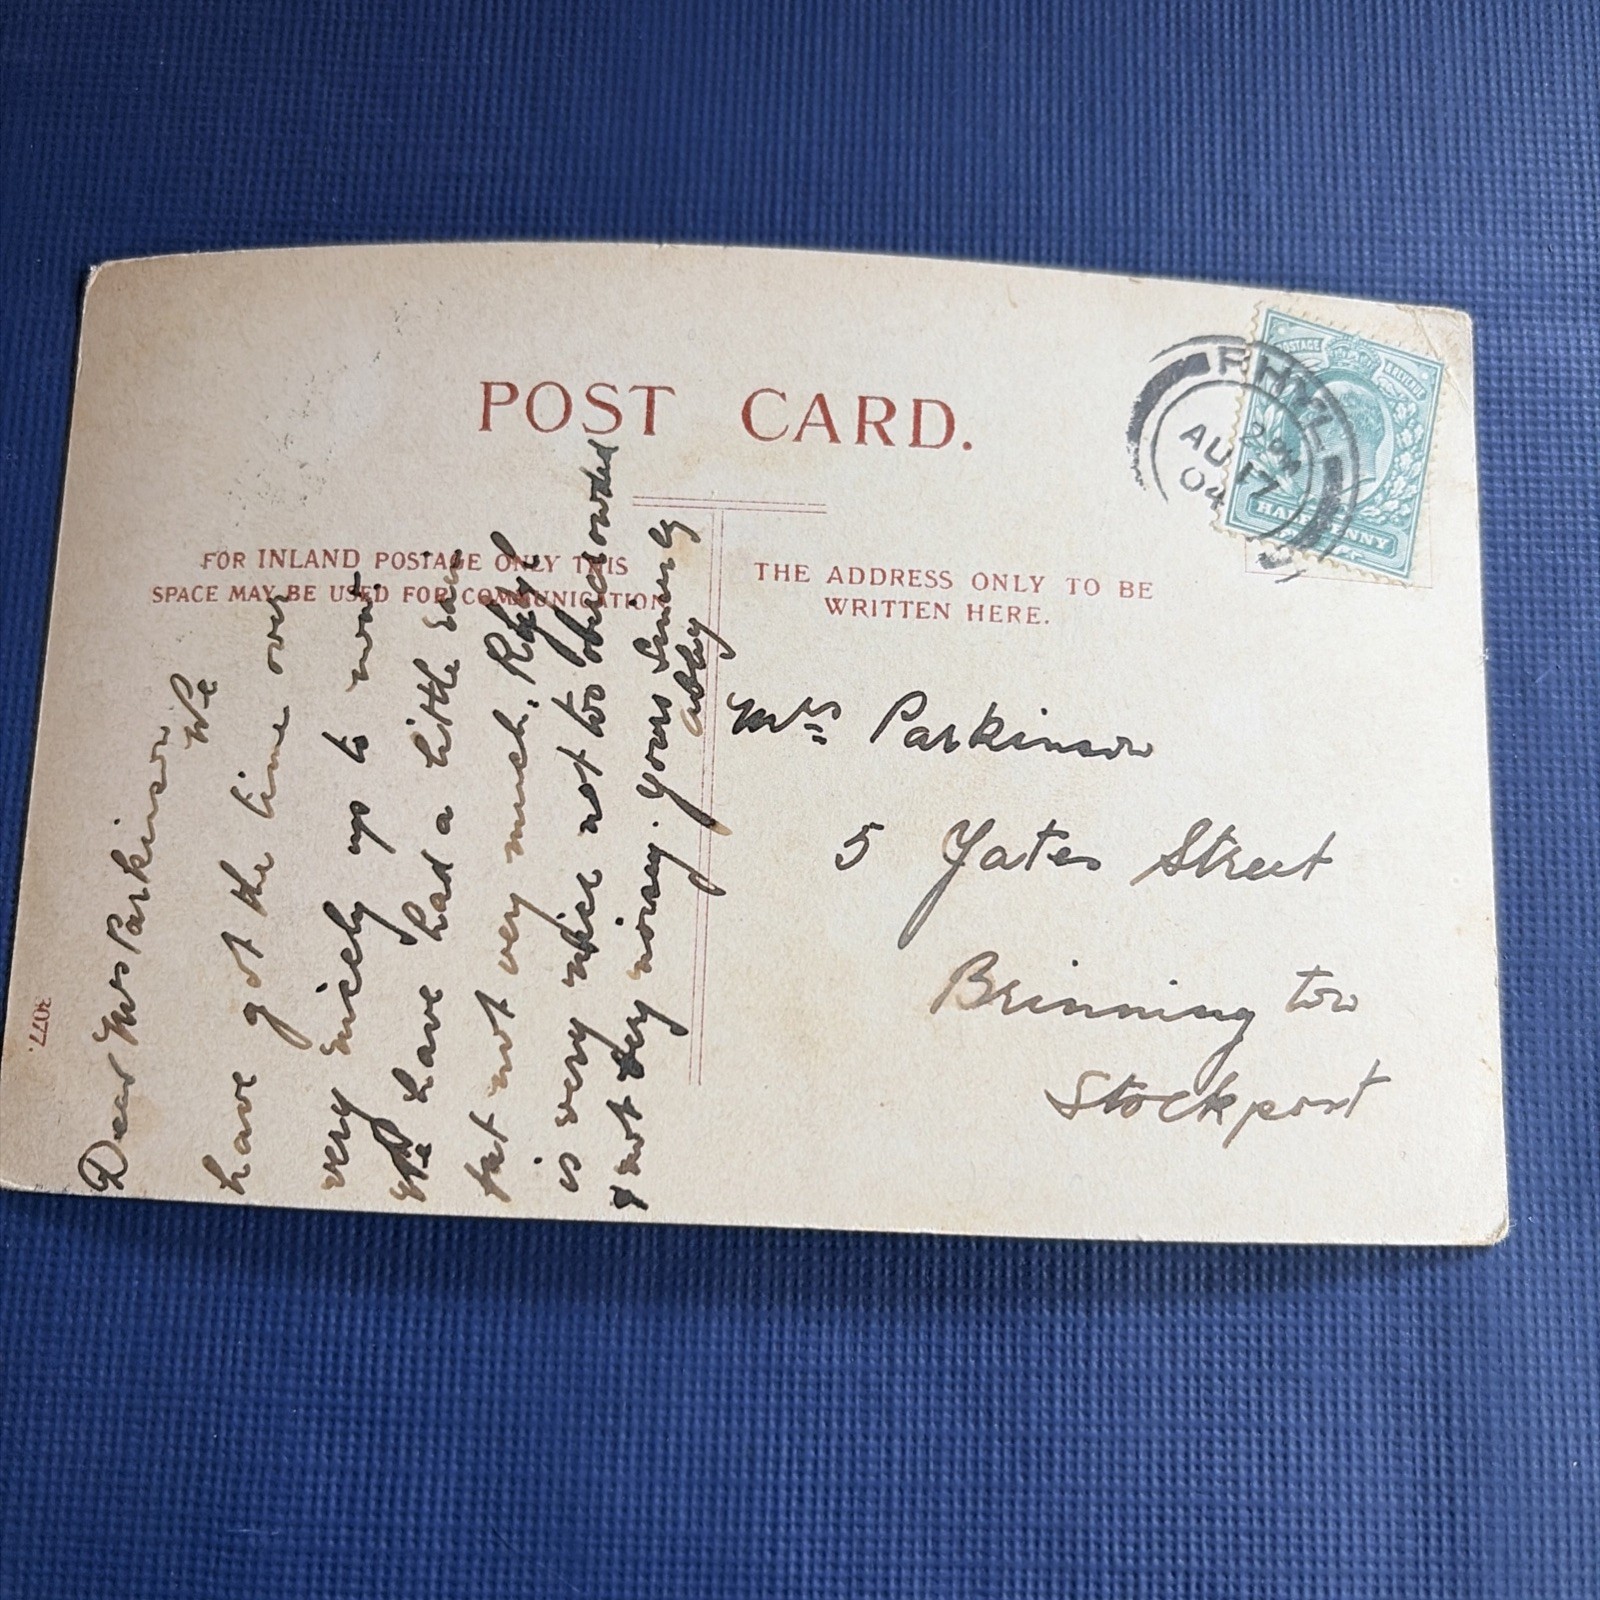 POST CARD.
FOR INLAND POSTAGE ONLY THIS
SPACE MAY BE USED FOR COMMUNICATION
THE ADDRESS ONLY TO BE
WRITTEN HERE.
POSTAGE & REVENUE
HALFPENNY
RHYL
2 PM
AU 17
04
Dear Mrs Parkinson
We
have got the time over
very nicely up to now
We have had a little rain
but not very much. Rhyl
is very nice not too overcrowded
& not very noisy. Yours Sincerely
Mrs Parkinson
5 Yates Street
Brinning ton
Stockport
3077.